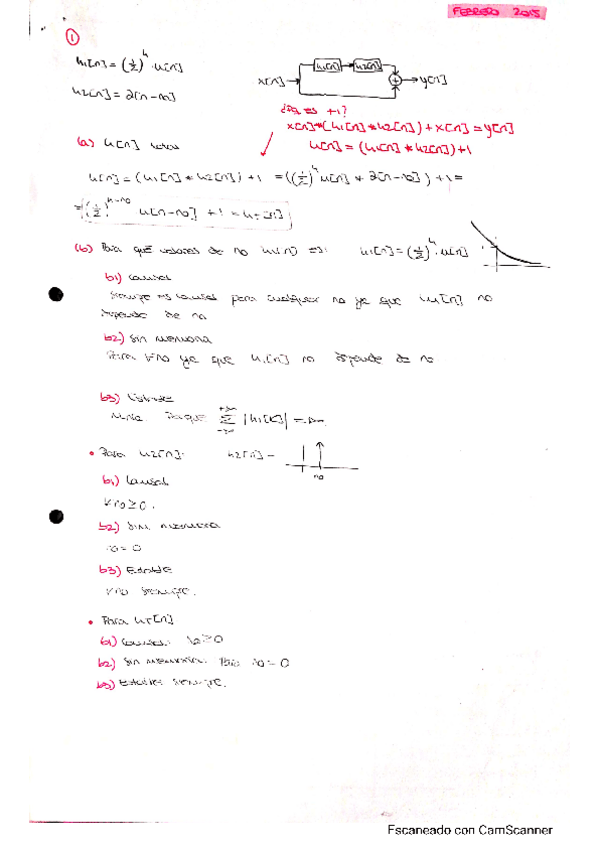 FEBRERO 2015
1
h1[n] = (1/2)^n · u[n]
h2[n] = δ[n-n0]
x[n] → h1[n] → h2[n] → + → y[n]
¿Qué es +1?
x[n]*(h1[n]*h2[n])+x[n]=y[n]
h[n] = (h1[n]*h2[n])+1
(a) h[n] total
h[n] = (h1[n]*h2[n]) + 1 = ((1/2)^n u[n] * δ[n-n0]) + 1 =
= (1/2)^n-n0 u[n-n0] + 1 = hT[n]
(b) Para qué valores de n0 h1[n] es: h1[n] = (1/2)^n · u[n]
b1) Causal
Siempre es causal para cualquier n0 ya que h1[n] no
depende de n0
b2) Sin memoria
Para ∀n0 ya que h1[n] no depende de n0
b3) Estable
Porque Σ |h1[k]| =
• Para h2[n]: h2[n] =
n0
b1) Causal
∀n0 ≥ 0.
b2) Sin memoria
n0 = 0
b3) Estable
∀n0 siempre.
• Para hT[n]
b1) Causal: n0 ≥ 0
b2) Sin memoria: Para n0 = 0
b3) Estable: siempre.
Escaneado con CamScanner